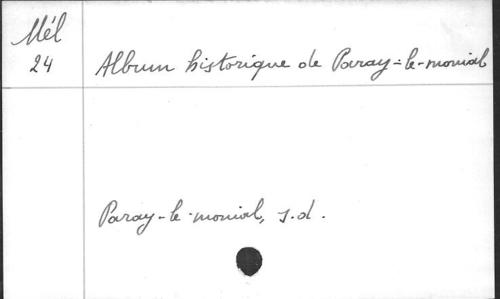 Mél
24
Album historique de Paray-le-monial
Paray-le-monial, s.d.